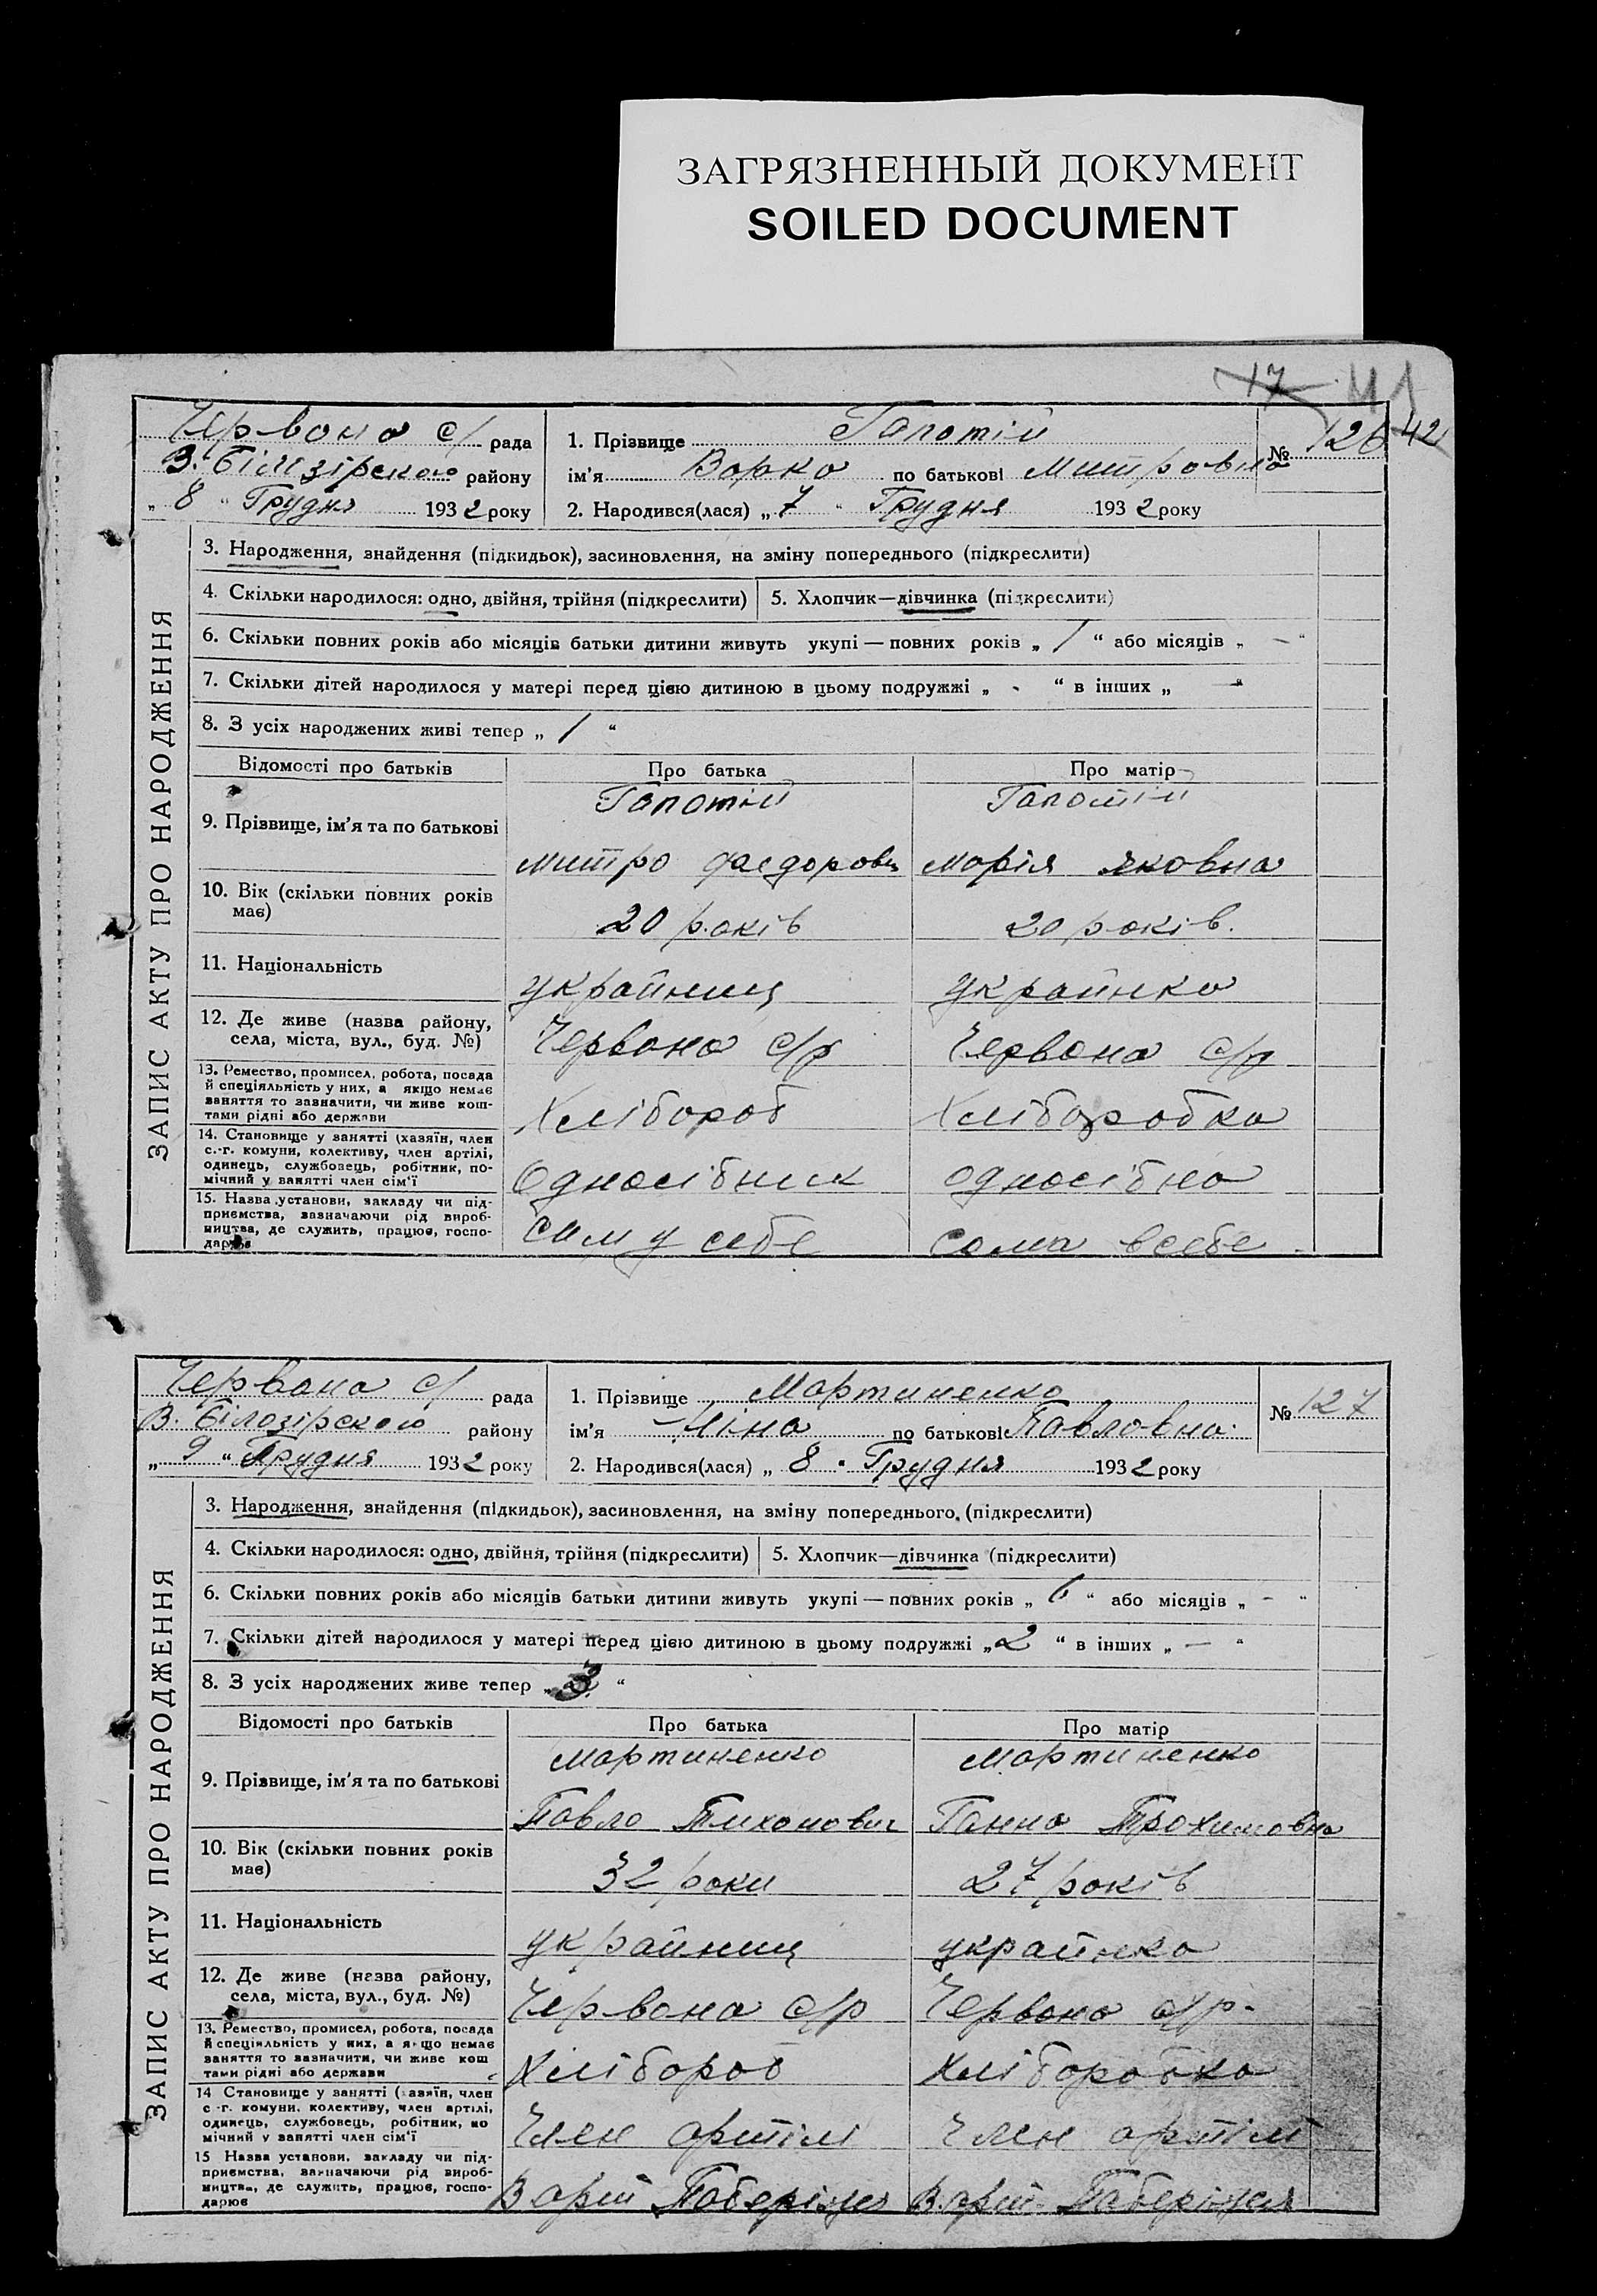 ЗАГРЯЗНЕННЫЙ ДОКУМЕНТ
SOILED DOCUMENT
17 41
42
Червона с/ рада
В. Білозірского району
„ 8 “ Грудня 1932 року
1. Прізвище Гапотій
ім'я Варка по батькові Митровна
2. Народився(лася) „ 7 “ Грудня 1932 року
№ 126
ЗАПИС АКТУ ПРО НАРОДЖЕННЯ
3. Народження, знайдення (підкидьок), засиновлення, на зміну попереднього (підкреслити)
4. Скільки народилося: одно, двійня, трійня (підкреслити) 5. Хлопчик—дівчинка (підкреслити)
6. Скільки повних років або місяців батьки дитини живуть укупі — повних років „ 1 “ або місяців „ — “
7. Скільки дітей народилося у матері перед цією дитиною в цьому подружжі „ - “ в інших „ — “
8. З усіх народжених живі тепер „ 1 “
Відомості про батьків Про батька Про матір
9. Прізвище, ім'я та по батькові
Гапотій Гапотій
митро федорович марія яковна
10. Вік (скільки повних років
має)
20 років 20 років.
11. Національність
українец українка
12. Де живе (назва району,
села, міста, вул., буд. №)
Червона с/р Червона с/р
13. Ремество, промисел, робота, посада
й спеціяльність у них, а якщо немає
заняття то зазначити, чи живе кош-
тами рідні або держави
Хлібороб Хліборобка
14. Становище у занятті (хазяїн, член
с.-г. комуни, колективу, член артілі,
одинець, службовець, робітник, по-
мічний у занятті член сім'ї
Односібник односібна
15. Назва установи, закладу чи під-
приємства, зазначаючи рід вироб-
ництва, де служить, працює, госпо-
дарює
сам у себе сама всебе
Червона с/ рада
В. Білозірского району
„ 9 “ Грудня 1932 року
1. Прізвище Мартиненко
ім'я Ніна по батькові Павловна
2. Народився(лася) „ 8 “ Грудня 1932 року
№ 127
ЗАПИС АКТУ ПРО НАРОДЖЕННЯ
3. Народження, знайдення (підкидьок), засиновлення, на зміну попереднього, (підкреслити)
4. Скільки народилося: одно, двійня, трійня (підкреслити) 5. Хлопчик—дівчинка (підкреслити)
6. Скільки повних років або місяців батьки дитини живуть укупі — повних років „ 6 “ або місяців „ - “
7. Скільки дітей народилося у матері перед цією дитиною в цьому подружжі „ 2 “ в інших „ — “
8. З усіх народжених живе тепер „ 3 “
Відомості про батьків Про батька Про матір
9. Прізвище, ім'я та по батькові
Мартиненко Мартиненко
Павло Тихонович Ганна Трохимовна
10. Вік (скільки повних років
має)
32 роки 27 років
11. Національність
українец українка
12. Де живе (назва району,
села, міста, вул., буд. №)
Червона с/р Червона с/р.
13. Ремество, промисел, робота, посада
й спеціяльність у них, а якщо немає
заняття то зазначити, чи живе кош
тами рідні або держави
Хлібороб Хліборобка
14 Становище у занятті (хазяїн, член
с.-г. комуни, колективу, член артілі,
одинець, службовець, робітник, по
мічний у занятті член сім'ї
Член артілі Член артілі
15 Назва установи, закладу чи під-
приємства, зазначаючи рід вироб-
ництва, де служить, працює, госпо-
дарює
В арт